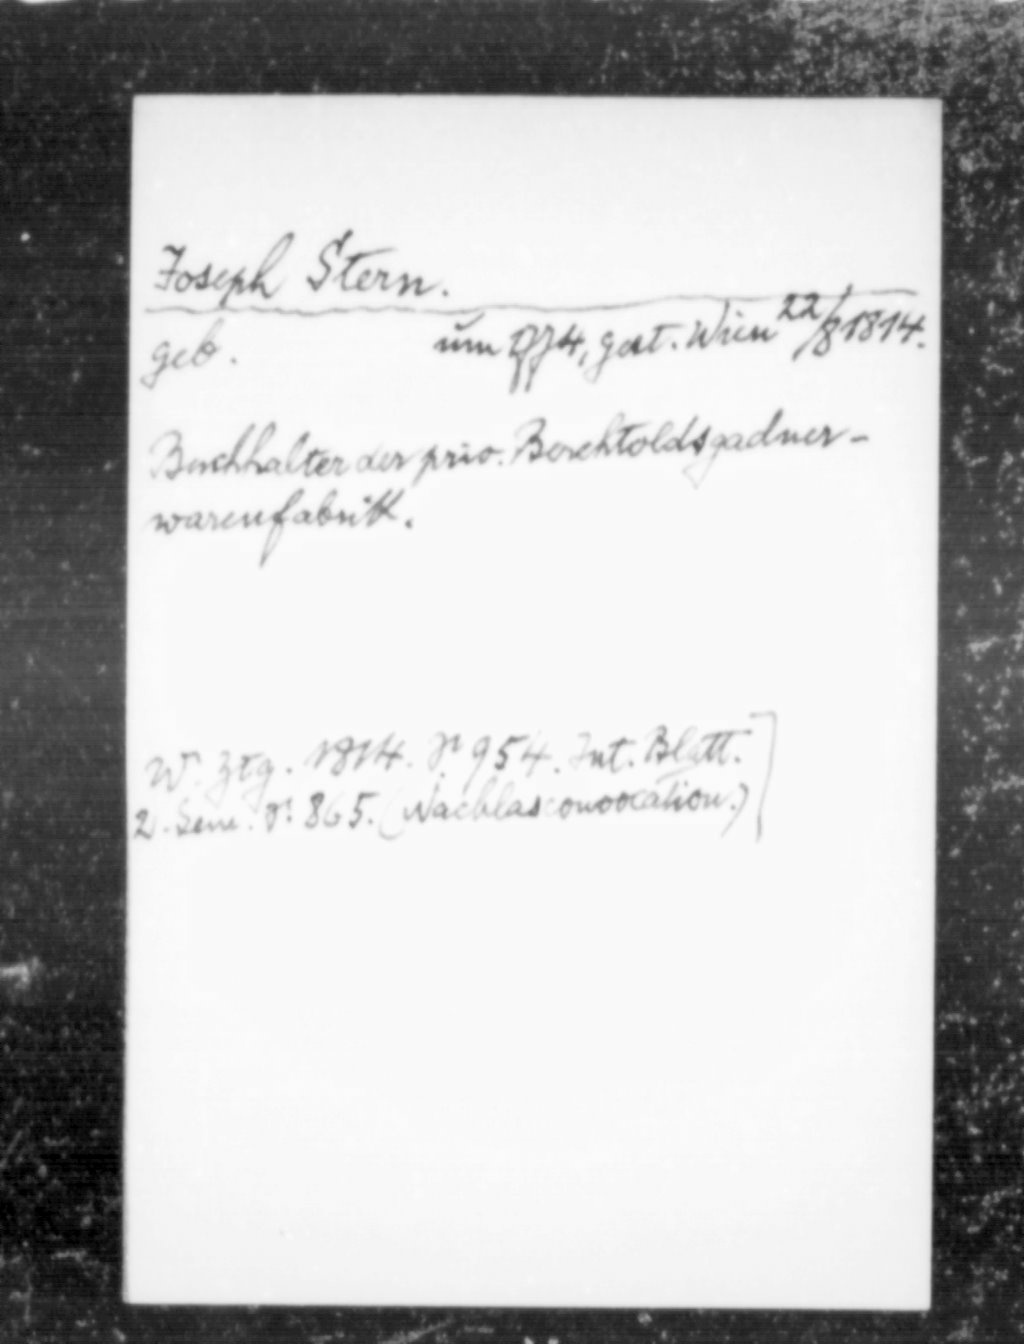 Joseph Stern.
geb. um 1774, gest. Wien 22/8 1814.
Buchhalter der priv. Berchtoldsgadner-
warenfabrik.
W. Ztg. 1814. S. 954. Int. Blatt.
2. Sem. S. 865. (Nachlassconvocation.)